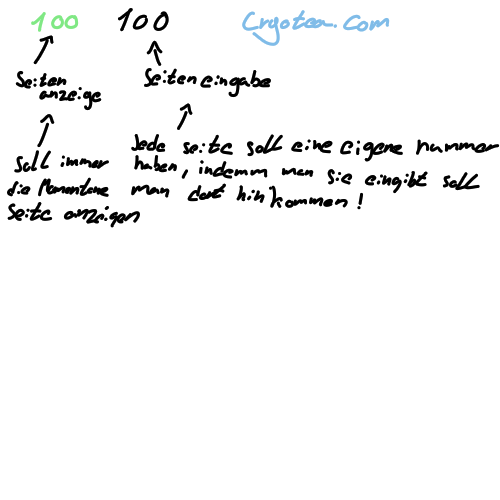 100 100 Cryotea.Com
Seiten
anzeige
Seiteneingabe
Soll immer
die Momentane
Seite anzeigen
Jede seite soll eine eigene nummer
haben, indemm man sie eingibt soll
man dort hin kommen!